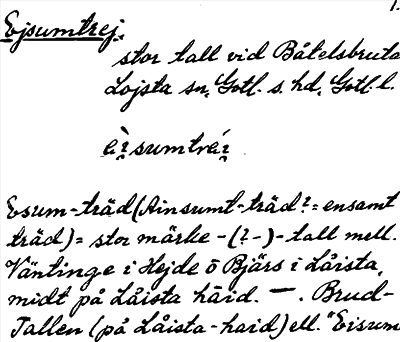 1.
Ejsumtrej.
stor tall vid Båtelsbruta
Lojsta sn, Gotl. s. hd, Gotl. l.
Esum-träd (Ainsumt-träd? = ensamt
träd) = stor märke - (?-) - tall mell.
Väntinge i Hejde o Bjärs i Låista,
midt på Låista häid. — . Brud-
Tallen (på Låista-haid) ell. "Eisum